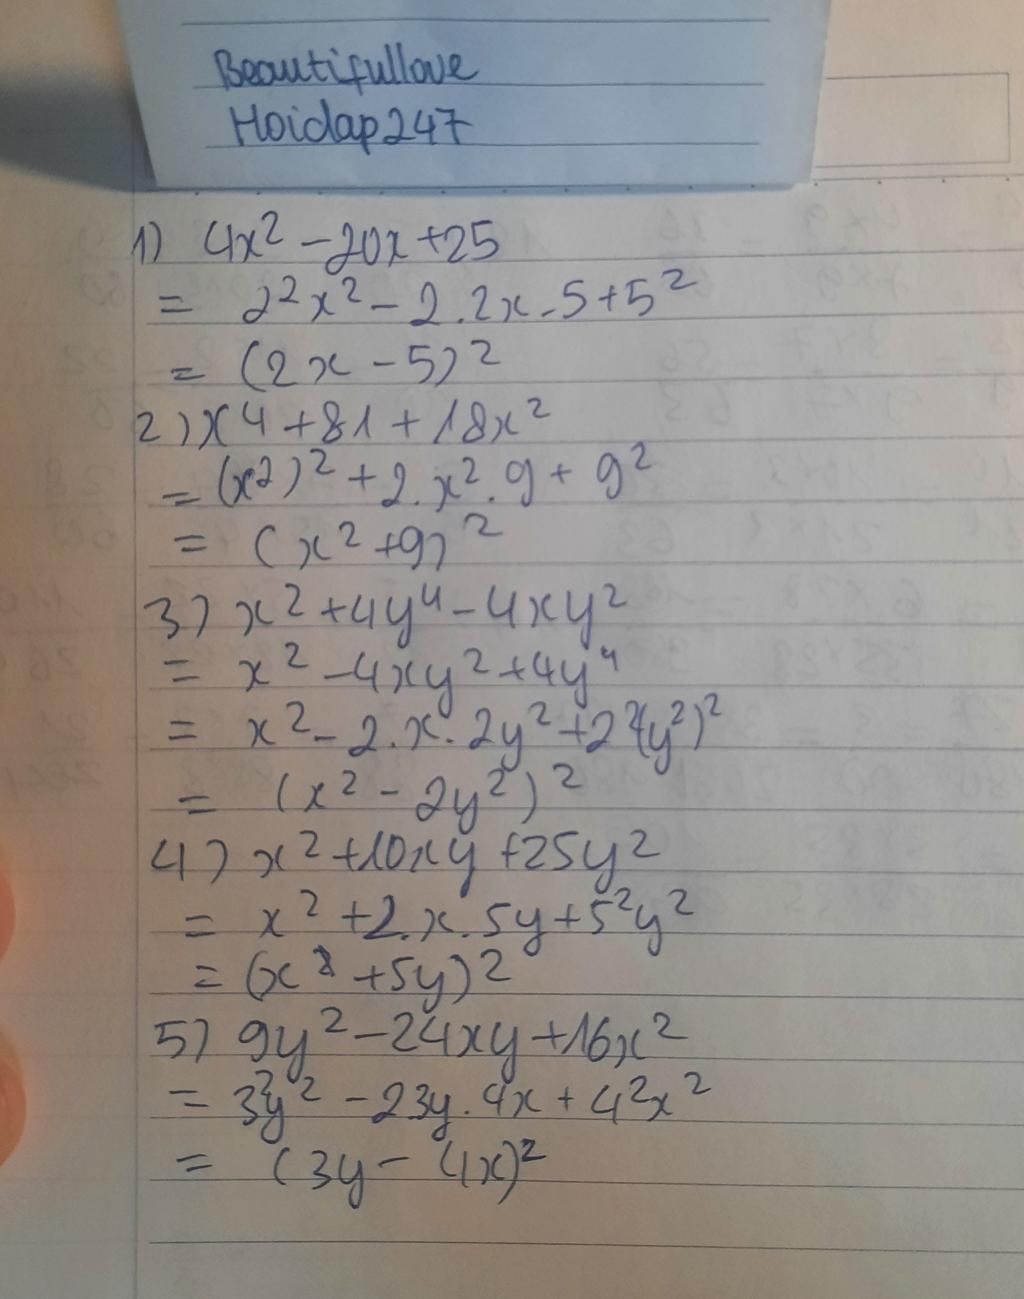 Beautifullove
Hoidap247
1) 4x² - 20x + 25
= 2²x² - 2.2x.5 + 5²
= (2x - 5)²
2) x⁴ + 81 + 18x²
= (x²)² + 2.x².9 + 9²
= (x² + 9)²
3) x² + 4y⁴ - 4xy²
= x² - 4xy² + 4y⁴
= x² - 2.x.2y² + 2²(y²)²
= (x² - 2y²)²
4) x² + 10xy + 25y²
= x² + 2.x.5y + 5²y²
= (x + 5y)²
5) 9y² - 24xy + 16x²
= 3²y² - 2.3y.4x + 4²x²
= (3y - 4x)²